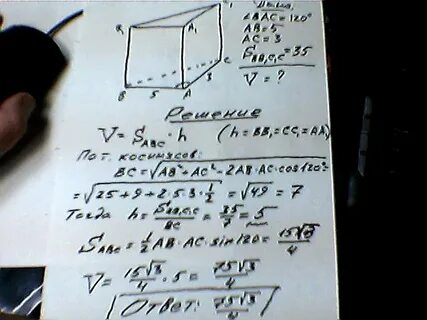 Дано:
∠BAC=120°
AB=5
AC=3
S_BB₁C₁C=35
V = ?
B₁ A₁ C₁
B 5 A 3 C
Решение
V = S_ABC · h (h = BB₁ = CC₁ = AA₁)
По т. косинусов:
BC = √AB² + AC² - 2AB·AC·cos120° =
= √25 + 9 + 2·5·3·1/2 = √49 = 7
Тогда h = S_BB₁C₁C/BC = 35/7 = 5
S_ABC = 1/2 AB·AC·sin120 = 15√3/4
V = 15√3/4 · 5 = 75√3/4
Ответ: 75√3/4